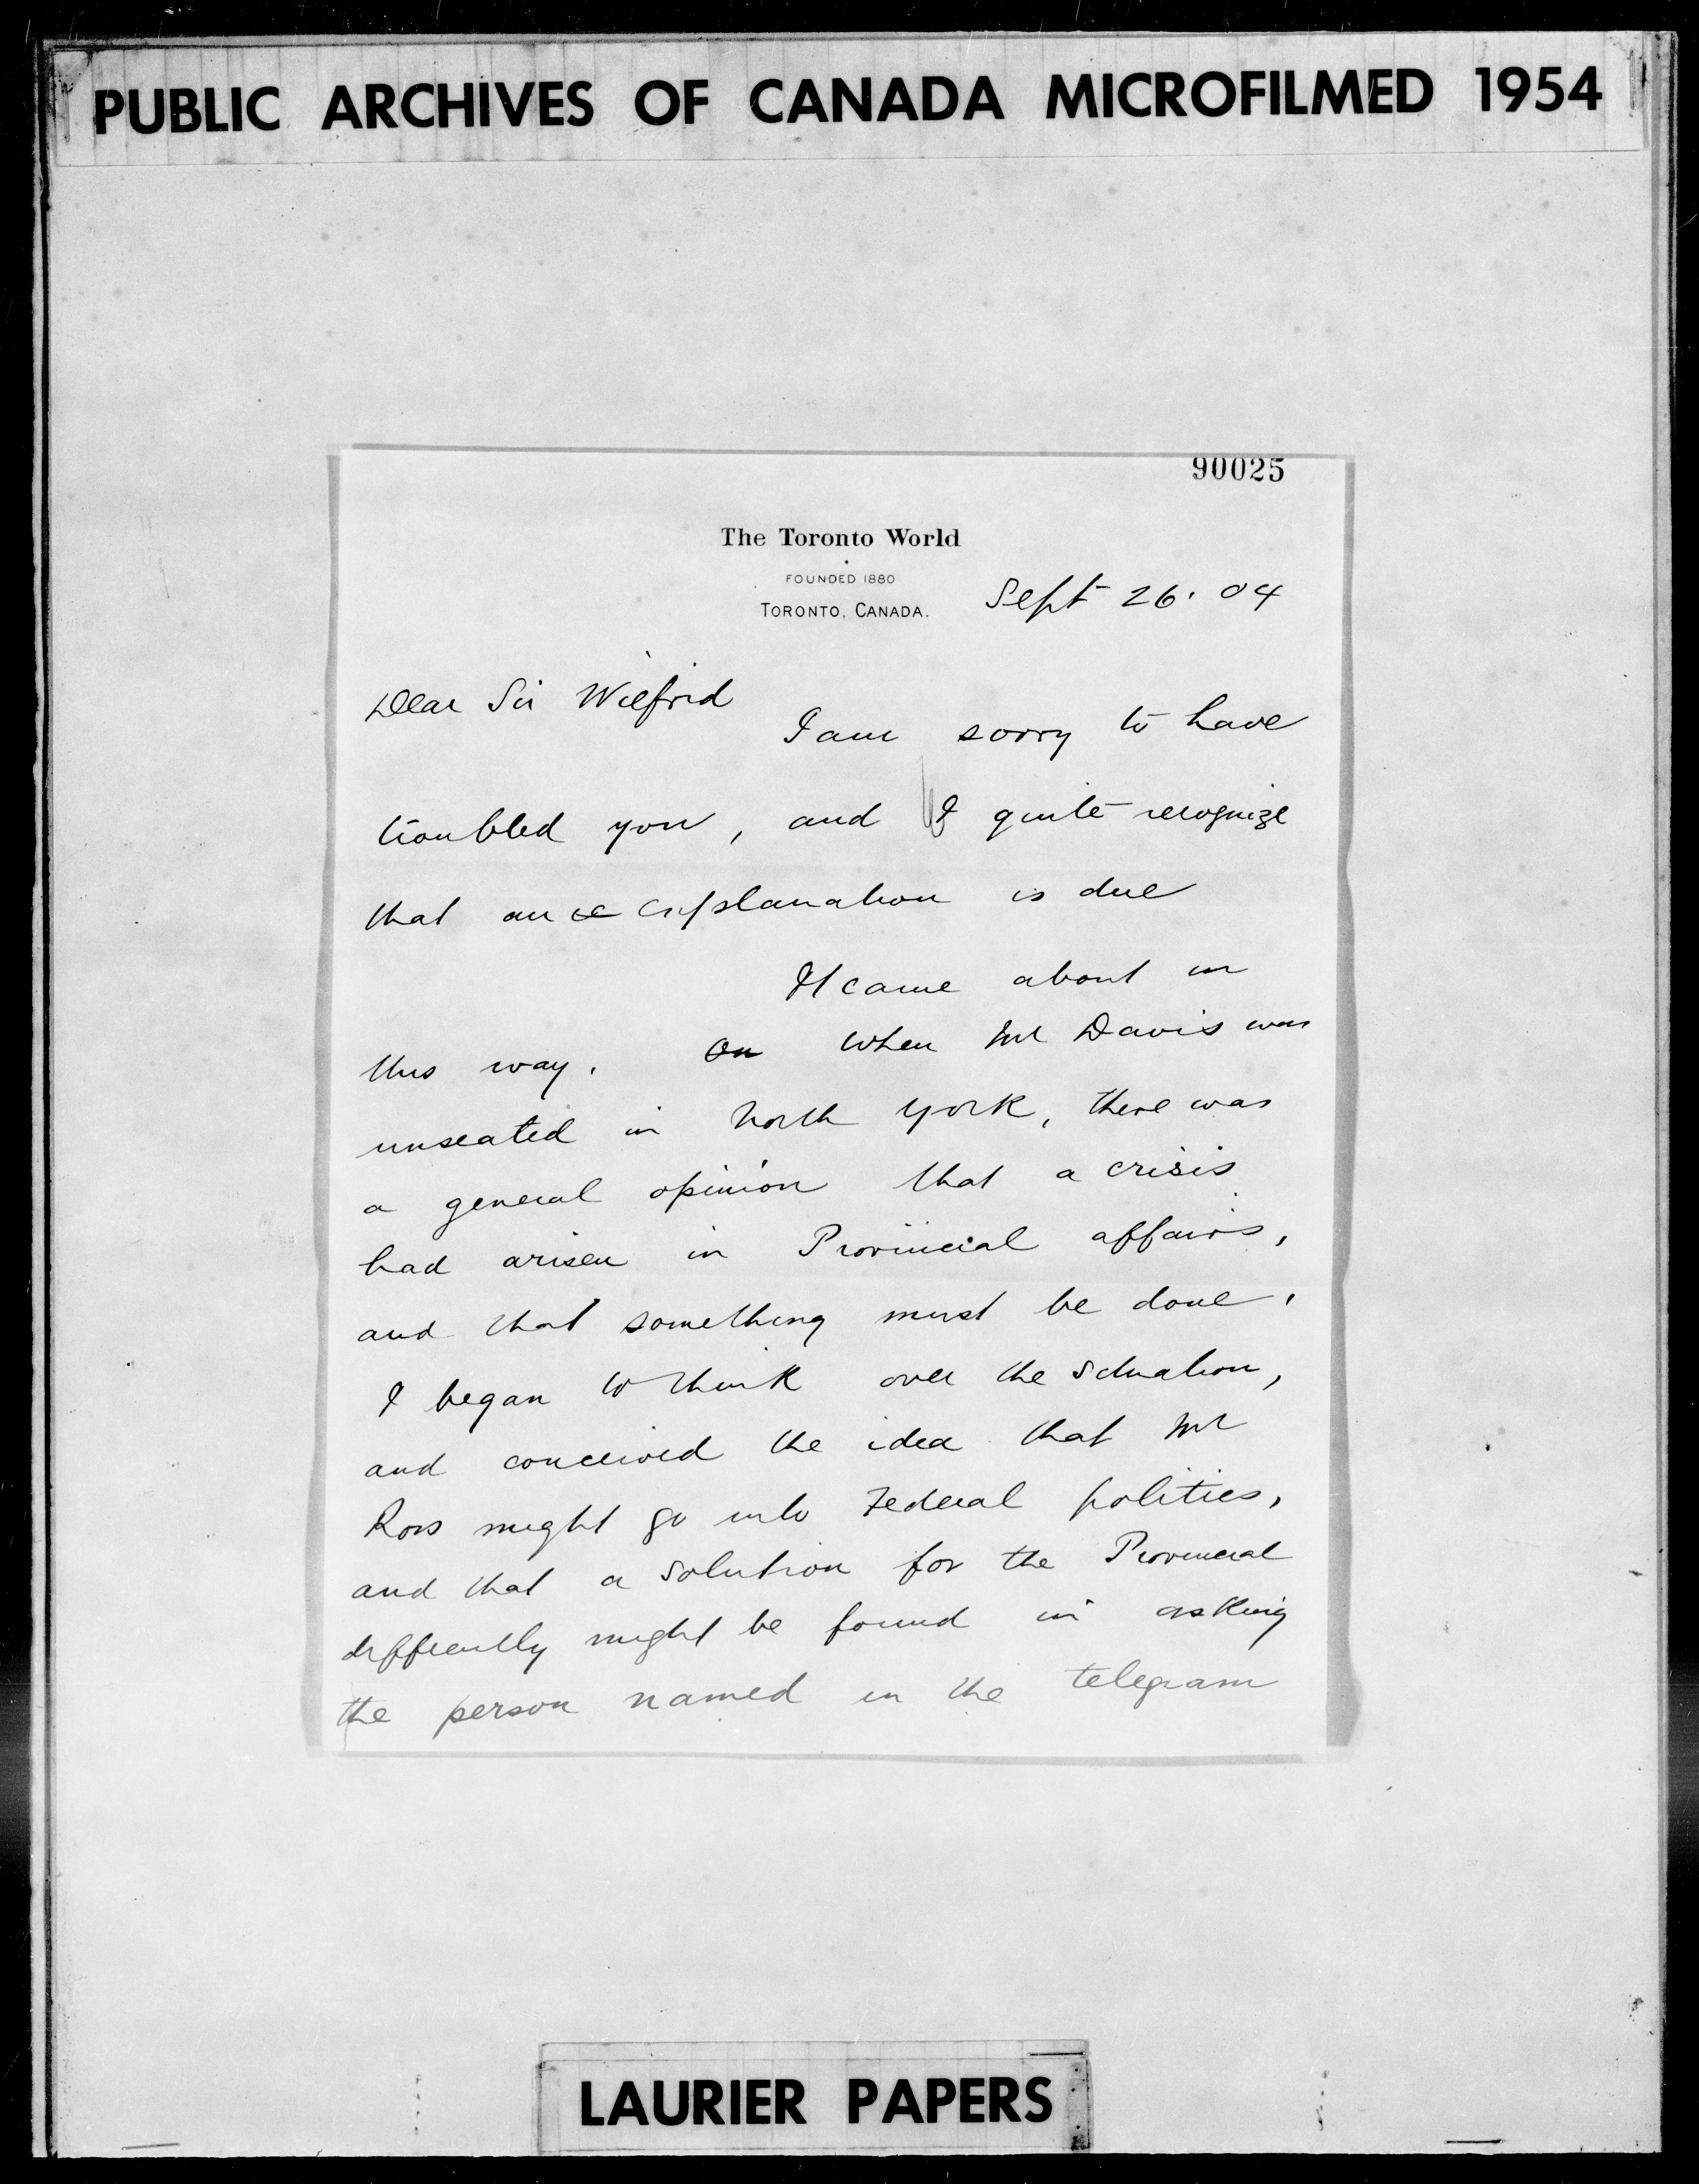 PUBLIC ARCHIVES OF CANADA MICROFILMED 1954
90025
The Toronto World
FOUNDED 1880
TORONTO, CANADA.
Sept 26. 04
Dear Sir Wilfrid
I am sorry to have
troubled you, and I quite recognize
that an explanation is due
It came about in
this way. On When Mr Davis was
unseated in North York, there was
a general opinion that a crisis
had arisen in Provincial affairs,
and that something must be done.
I began to think over the situation,
and conceived the idea that Mr
Ross might go into Federal politics,
and that a solution for the Provincial
difficulty might be found in asking
the person named in the telegram
LAURIER PAPERS